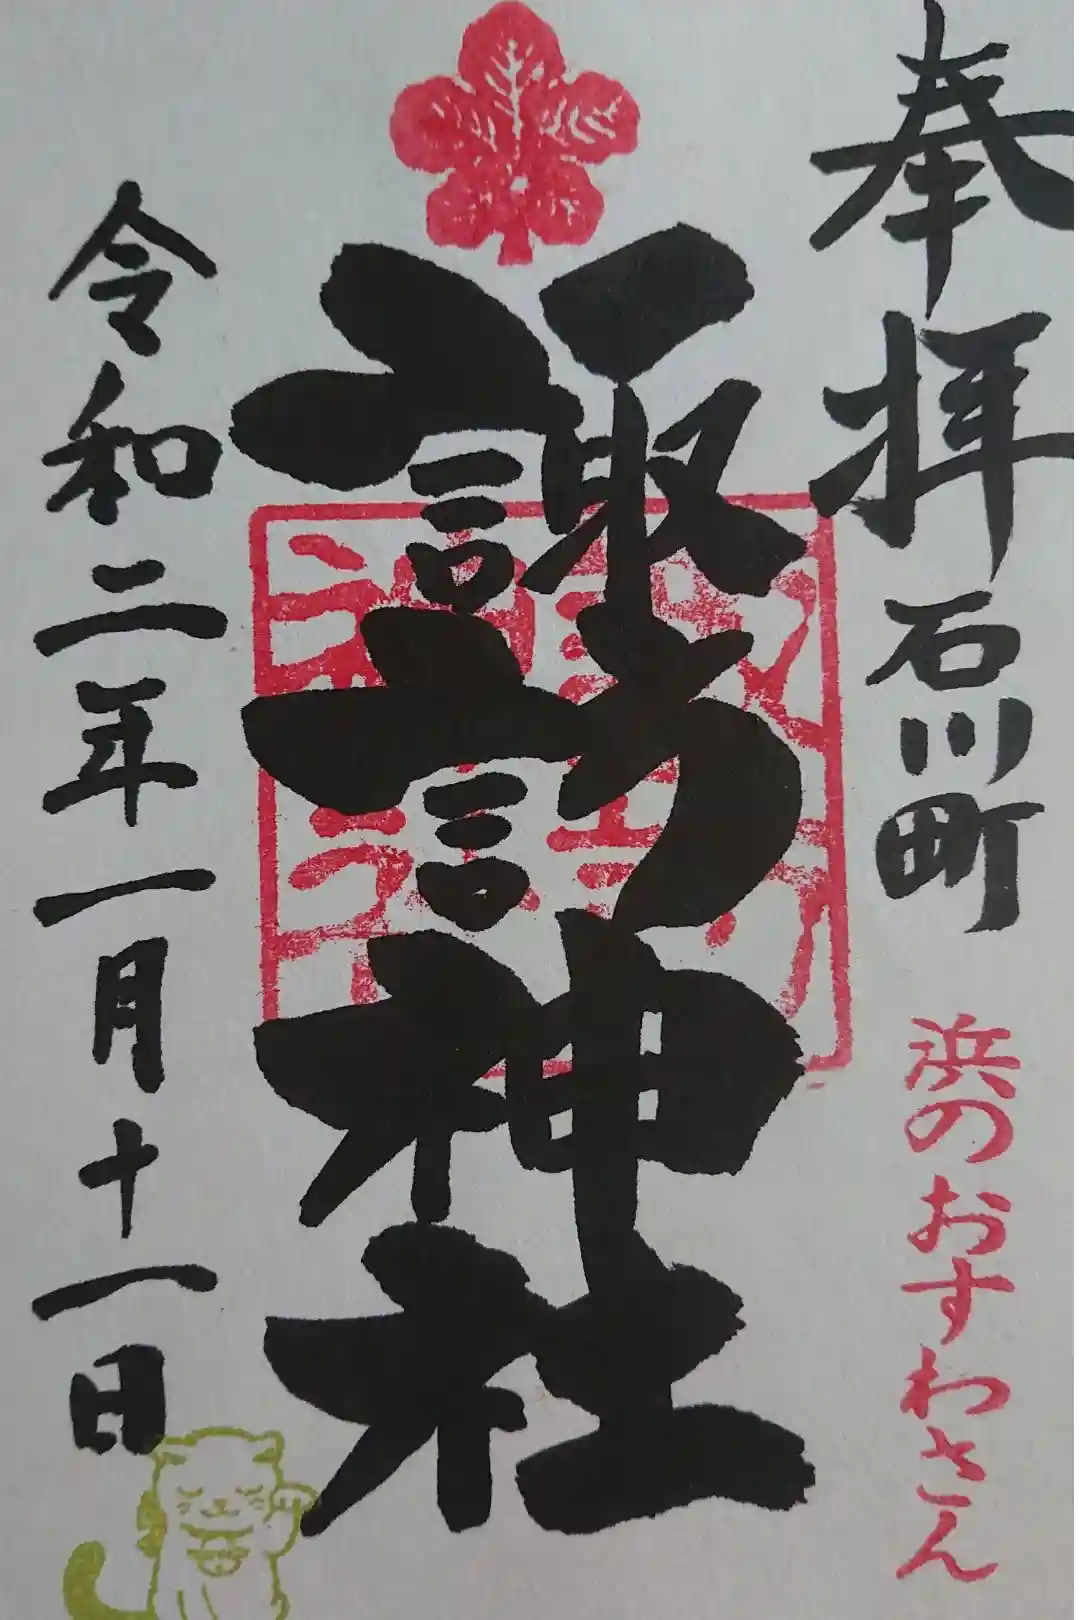 奉拝
石川町
浜のおすわさん
諏訪神社
令和二年一月十一日